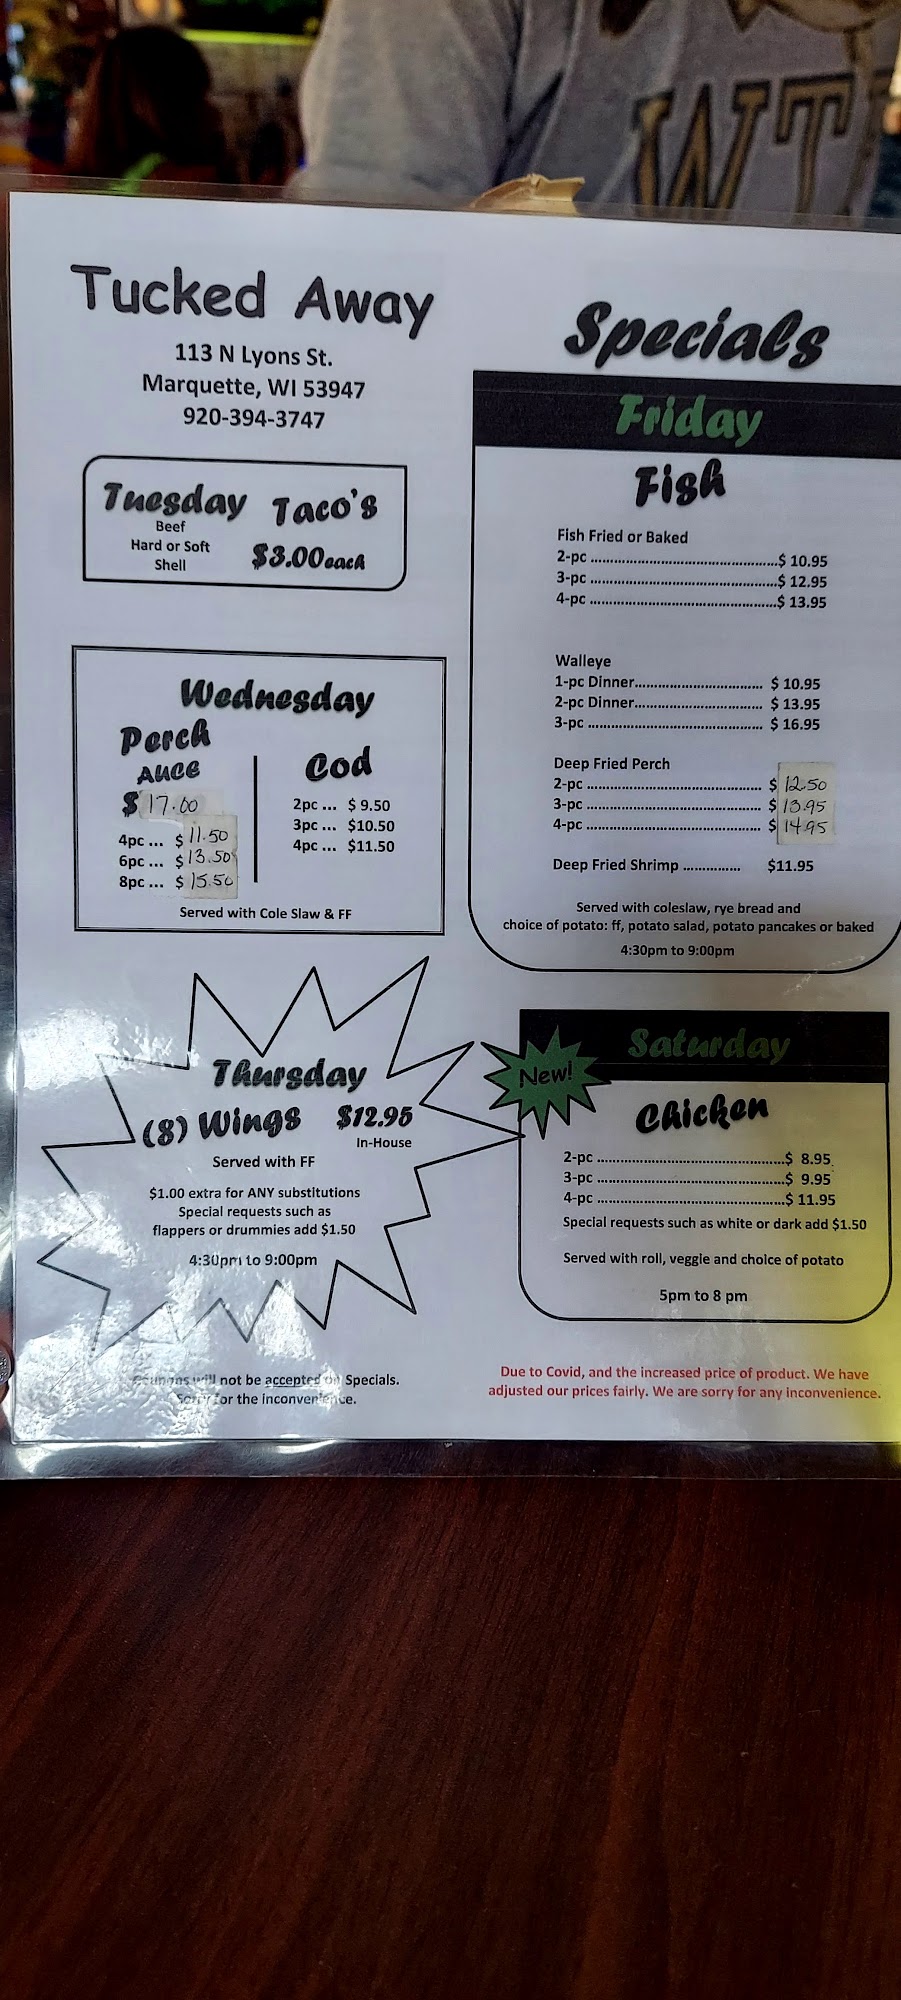 WT
Tucked Away
113 N Lyons St.
Marquette, WI 53947
920-394-3747
Tuesday Taco's
Beef
Hard or Soft
Shell
$3.00 each
Wednesday
Perch
AUCE
$ 17.00
4pc ... $ 11.50
6pc ... $ 13.50
8pc ... $ 15.50
Cod
2pc ... $ 9.50
3pc ... $10.50
4pc ... $11.50
Served with Cole Slaw & FF
Thursday
(8) Wings $12.95
In-House
Served with FF
$1.00 extra for ANY substitutions
Special requests such as
flappers or drummies add $1.50
4:30pm to 9:00pm
Coupons will not be accepted on Specials.
Sorry for the inconvenience.
Specials
Friday
Fish
Fish Fried or Baked
2-pc ..............................................$ 10.95
3-pc ..............................................$ 12.95
4-pc ..............................................$ 13.95
Walleye
1-pc Dinner............................... $ 10.95
2-pc Dinner............................... $ 13.95
3-pc ........................................... $ 16.95
Deep Fried Perch
2-pc ........................................... $ 12.50
3-pc ........................................... $ 13.95
4-pc ........................................... $ 14.95
Deep Fried Shrimp ............... $11.95
Served with coleslaw, rye bread and
choice of potato: ff, potato salad, potato pancakes or baked
4:30pm to 9:00pm
Saturday
New!
Chicken
2-pc ..............................................$ 8.95
3-pc ..............................................$ 9.95
4-pc ..............................................$ 11.95
Special requests such as white or dark add $1.50
Served with roll, veggie and choice of potato
5pm to 8 pm
Due to Covid, and the increased price of product. We have
adjusted our prices fairly. We are sorry for any inconvenience.